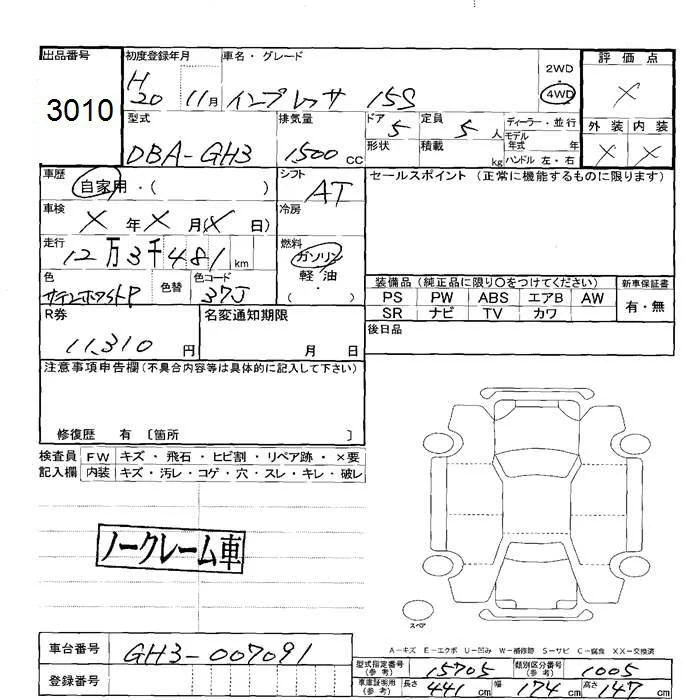 出品番号 初度登録年月 車名・グレード 評価点
3010 H20 11月 インプレッサ 15S 2WD・4WD X
型式 排気量 ドア 5 定員 5人 ディーラー・並行 外装 内装
DBA-GH3 1500CC 形状 積載 kg モデル年式 年 ハンドル 左・右 X X
車歴 自家用・( ) シフト AT セールスポイント (正常に機能するものに限ります)
車検 X年X月(X日) 冷房
走行 12万3千481km 燃料 ガソリン 軽油 ・ ( )
色 サテンホワイトP 色替 色コード 37J
装備品 (純正品に限り〇をつけてください) 新車保証書
PS PW ABS エアB AW 有・無
SR ナビ TV カワ
R券 11,310円 名変通知期限 月 日 後日品
注意事項申告欄(不具合内容等は具体的に記入して下さい)
修復歴 有 〔箇所 〕
検査員 FW キズ・飛石・ヒビ割・リペア跡・×要
記入欄 内装 キズ・汚レ・コゲ・穴・スレ・キレ・破レ
ノークレーム車
スペア
A-キズ E-エクボ U-凹み W-補修跡 S-サビ C-腐食 XX-交換済
車台番号 GH3-007091
登録番号
型式指定番号(参考) 15705 類別区分番号(参考) 1005
車庫証明用(参考) 長さ 441cm 幅 174cm 高さ 147cm